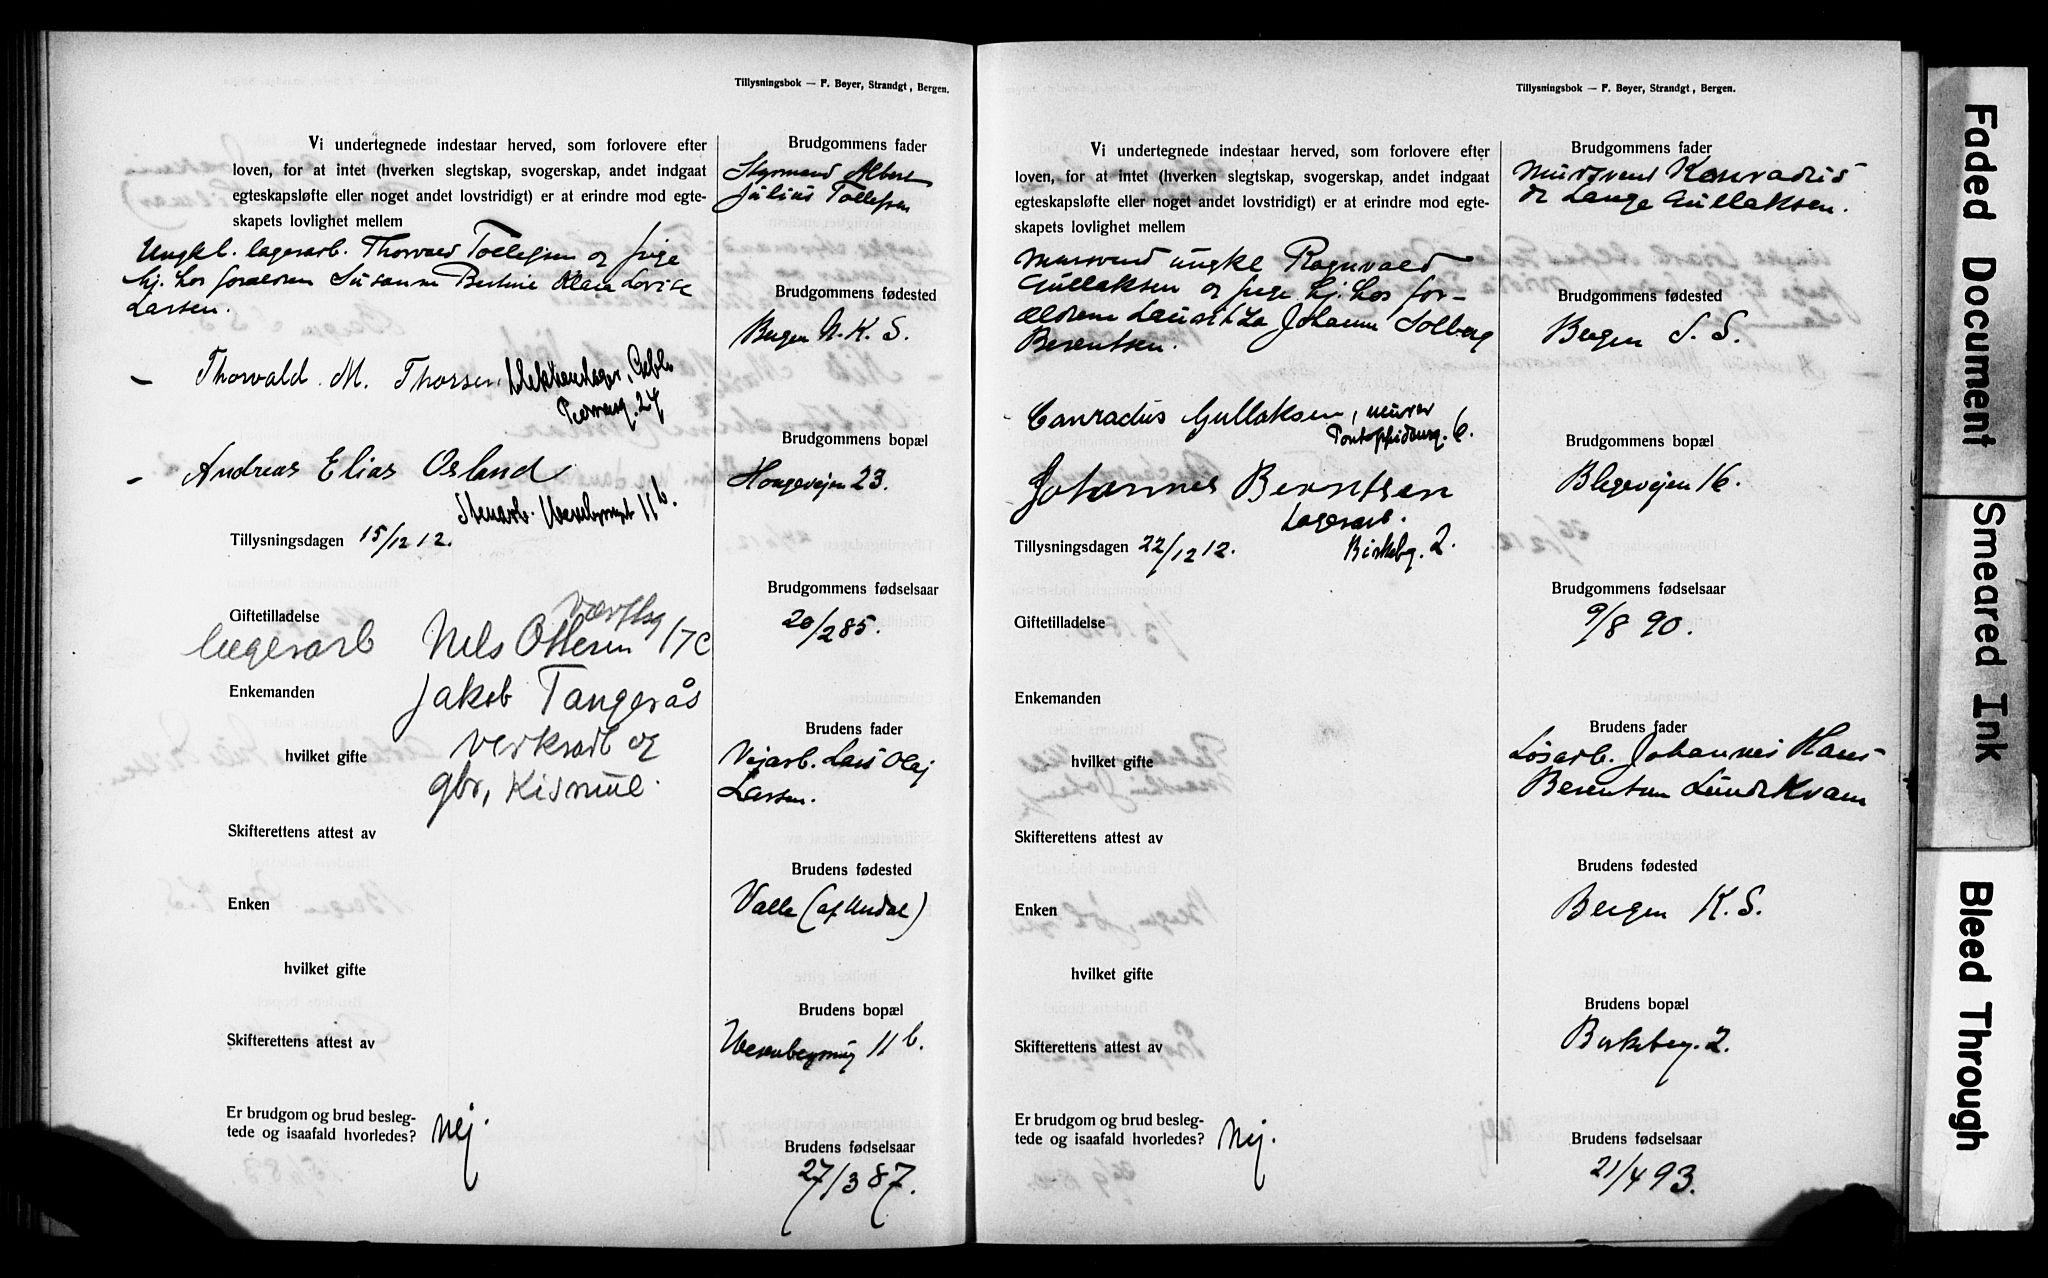 Tillysningsbok — F. Beyer, Strandgt, Bergen.
Vi undertegnede indestaar herved, som forlovere efter
loven, for at intet (hverken slegtskap, svogerskap, andet indgaat
egteskapsløfte eller noget andet lovstridigt) er at erindre mod egte-
skapets lovlighet mellem
Ungkl. lagerarb. Thorvald Tollefsen og pige
hj. hos forældren Susanne Bertine Lovise
Larsen.
Thorvald M. Thorsen,
27
Andreas Elias Osland
Stenarb. 11 b.
Tillysningsdagen 15/12 12.
Giftetilladelse
lagerarb Nels Ottesen 17c
Enkemanden
Jakob Tangerås
hvilket gifte
verksarb og
gbr,
Skifterettens attest av
Enken
hvilket gifte
Skifterettens attest av
Er brudgom og brud besleg-
tede og isaafald hvorledes? Nej.
Brudgommens fader
Styrmand Albert
Julius Tollefsen
Brudgommens fødested
Bergen N. K. S.
Brudgommens bopæl
Haugevejen 23.
Brudgommens fødselsaar
20/2 85.
Brudens fader
Vejarb. Lars Olaj
Larsen.
Brudens fødested
Valle (af Undal)
Brudens bopæl
11 b.
Brudens fødselsaar
27/3 87.
Tillysningsbok — F. Beyer, Strandgt, Bergen.
Vi undertegnede indestaar herved, som forlovere efter
loven, for at intet (hverken slegtskap, svogerskap, andet indgaat
egteskapsløfte eller noget andet lovstridigt) er at erindre mod egte-
skapets lovlighet mellem
Mursvend ungkl Ragnvald
Gullaksen og pige hj. hos for-
ældrene Lauritza Johanne Solberg
Berentsen.
Conradus Gullaksen, murer
Pontoppidansg. 6.
Johannes Berntsen
Lagerarb.
Tillysningsdagen 22/12 12.
Birkebg. 2.
Giftetilladelse
Enkemanden
hvilket gifte
Skifterettens attest av
Enken
hvilket gifte
Skifterettens attest av
Er brudgom og brud besleg-
tede og isaafald hvorledes? Nej.
Brudgommens fader
Mursvend Konradus
de Lange Gullaksen.
Brudgommens fødested
Bergen S. S.
Brudgommens bopæl
Blegevejen 16.
Brudgommens fødselsaar
9/8 90.
Brudens fader
Løsarb. Johannes Hans
Berentsen Lund Kvam
Brudens fødested
Bergen K. S.
Brudens bopæl
Birkebeg. 2.
Brudens fødselsaar
21/4 93.
Faded Document
Smeared Ink
Bleed Through